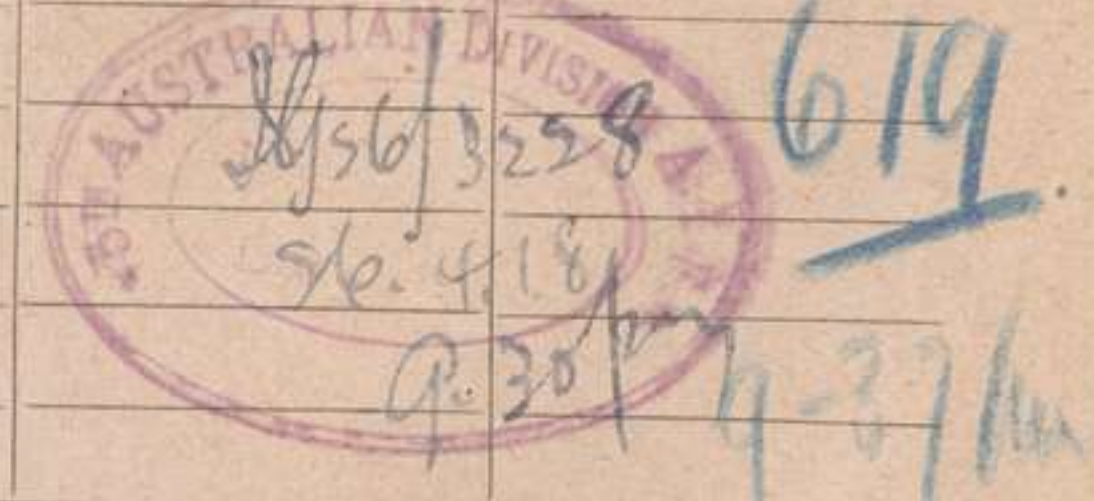 5TH AUSTRALIAN DIVISION A.I.F.
619.
/3228
4.18
9.30pm
9-37pm